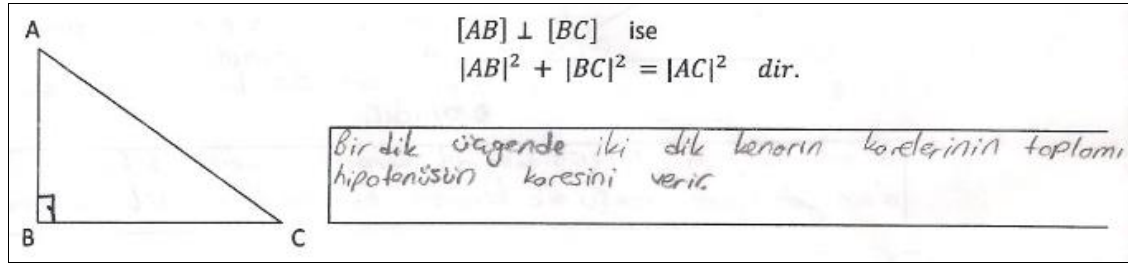 A
[AB] ⊥ [BC] ise
|AB|² + |BC|² = |AC|² dir.
Bir dik üçgende iki dik kenarın karelerinin toplamı
hipotenüsün karesini verir.
B
C